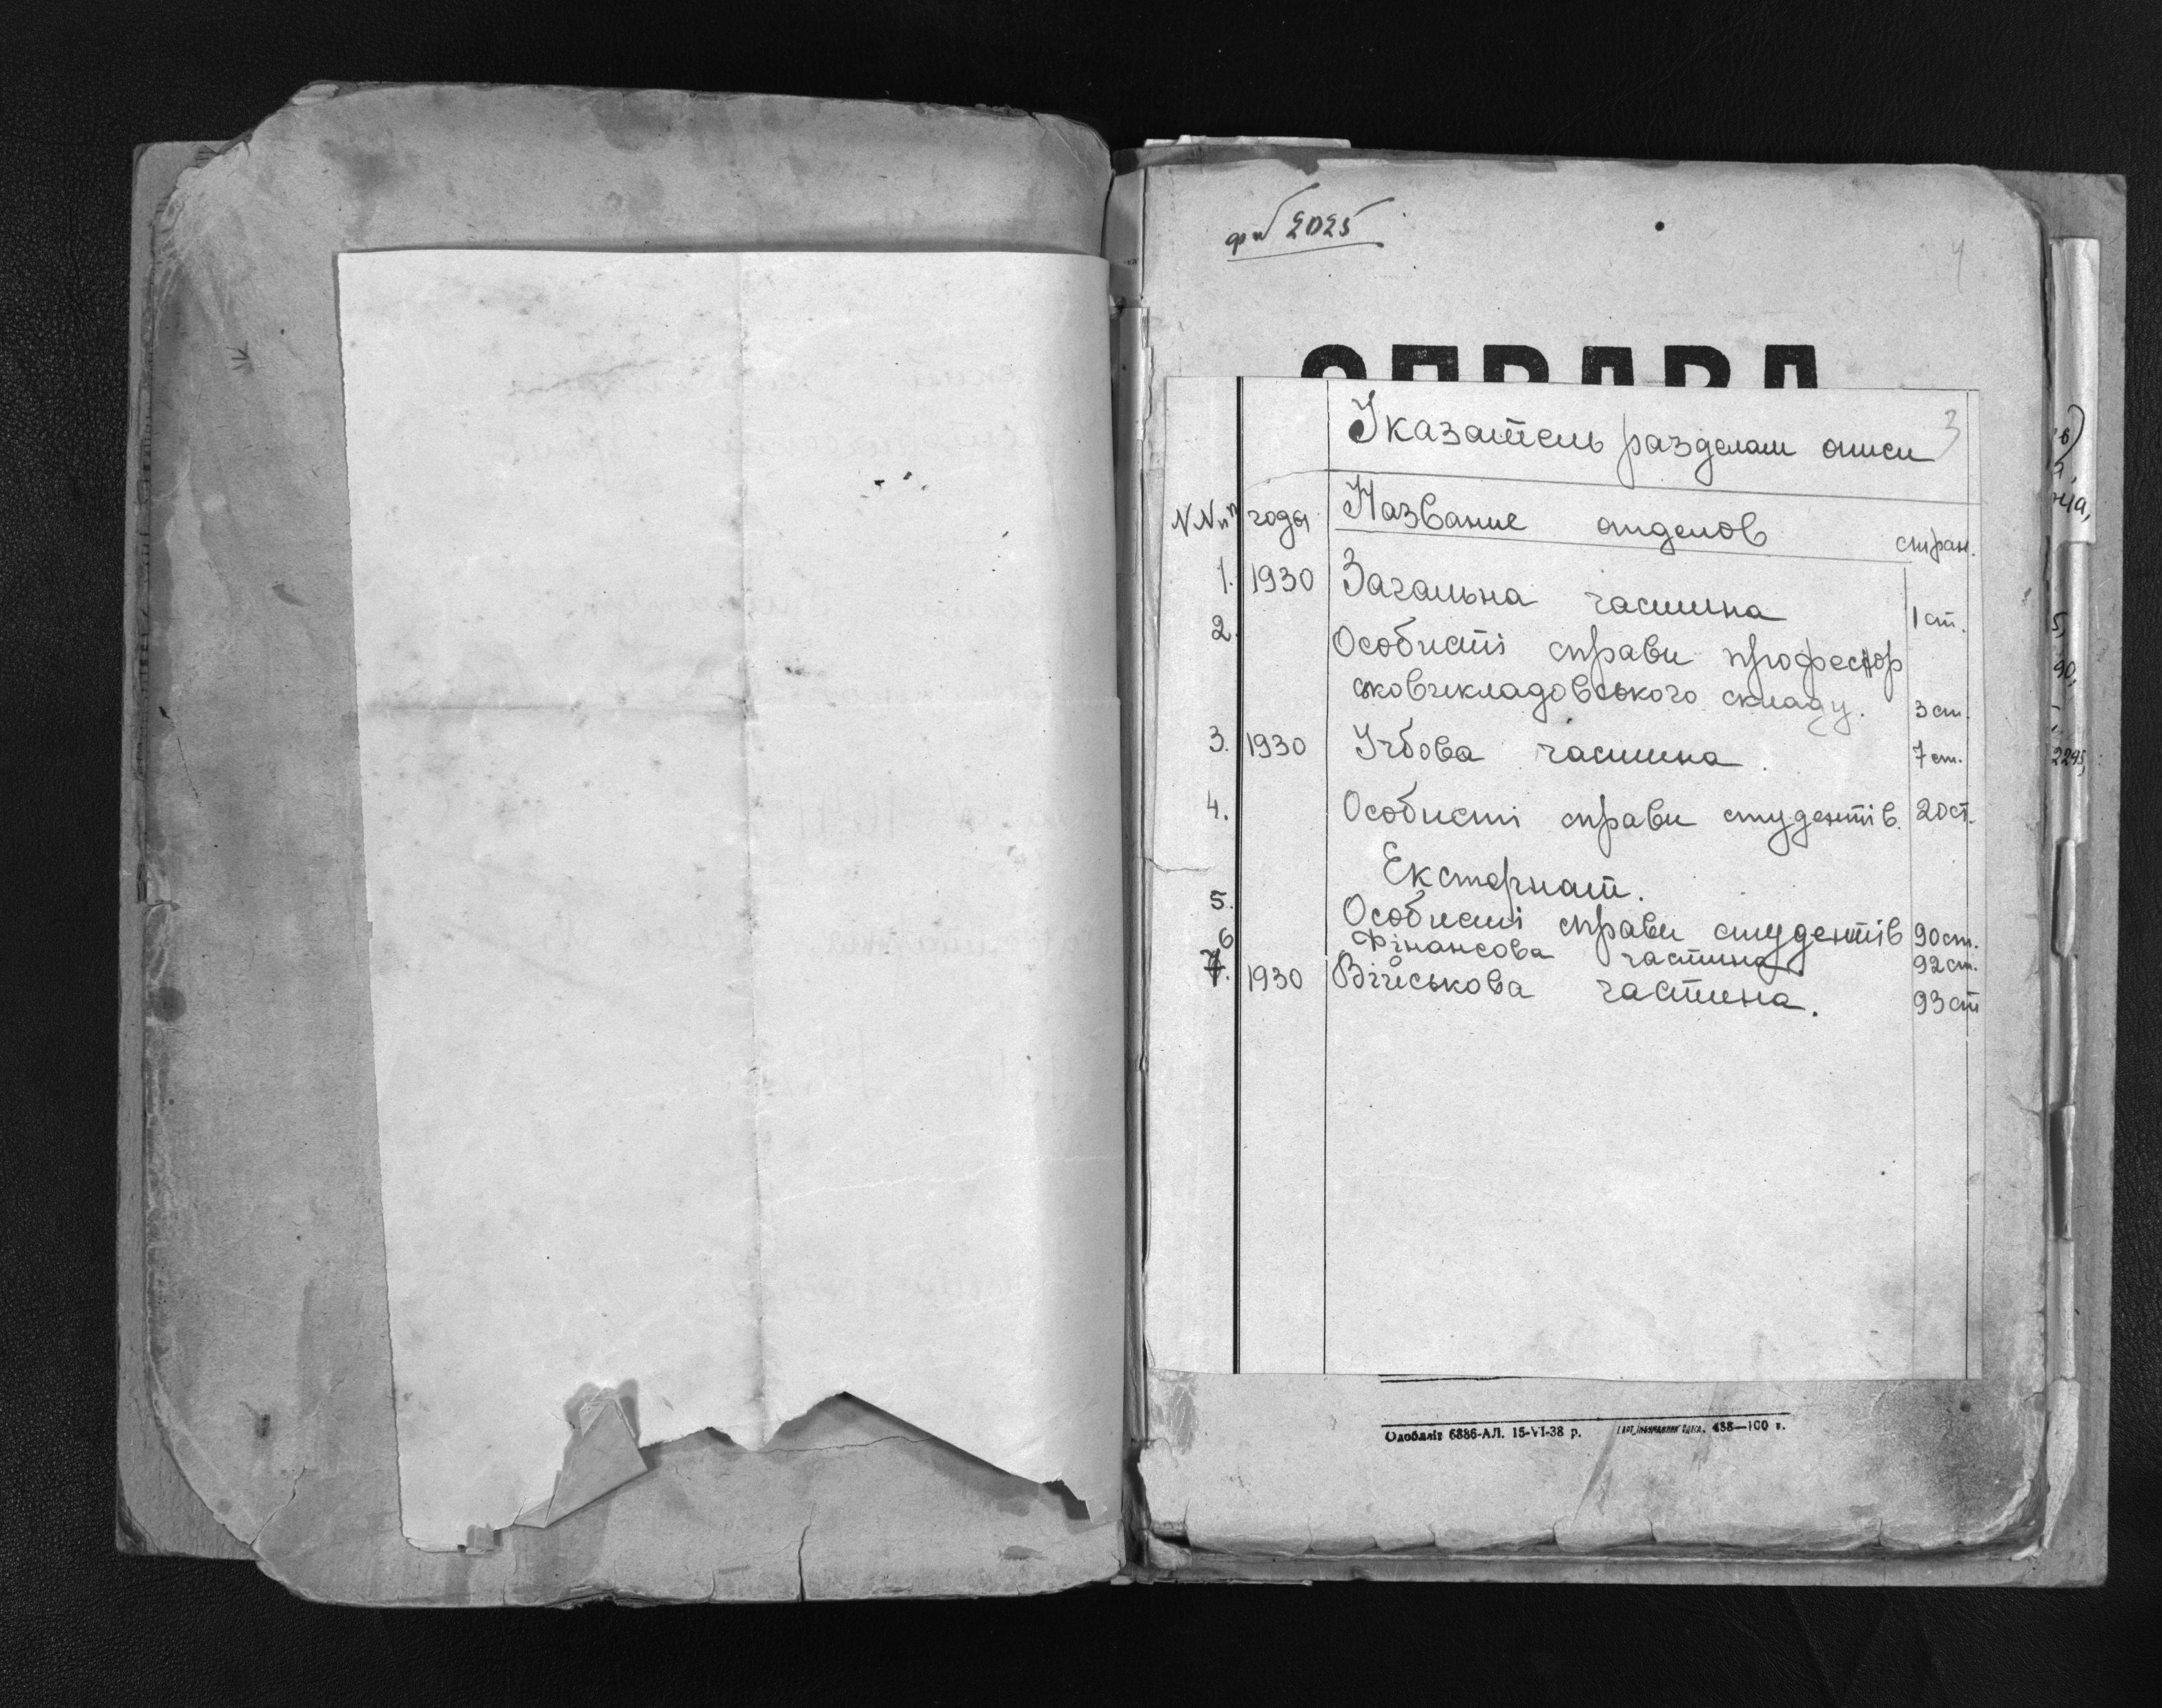 2025
СПРАВА
Указатель разделам описи
3
NNпп годы Название отделов стран.
1. 1930 Загальна частина 1 ст.
2. Особисті справи професор
ськовикладовського складу. 3 ст.
3. 1930 Учбова частина. 7 ст.
4. Особисті справи студентів. 20 ст.
Екстернат.
5. Особисті справи студентів 90 ст.
6 Фінансова частина 92 ст.
7. 1930 Військова частина. 93 ст
Одобліт 6886-АЛ. 15-VI-38 р. 438—100 т.